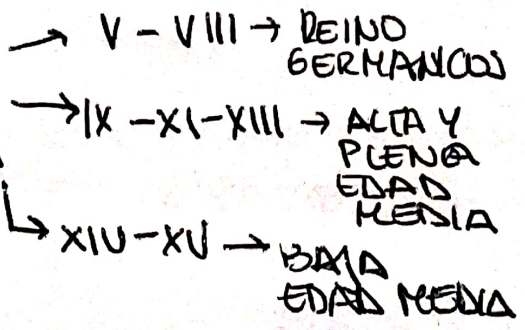 → V - VIII → REINO
GERMANICOS
→ IX - XI - XIII → ALTA Y
PLENA
EDAD
MEDIA
↳ XIV - XV → BAJA
EDAD MEDIA